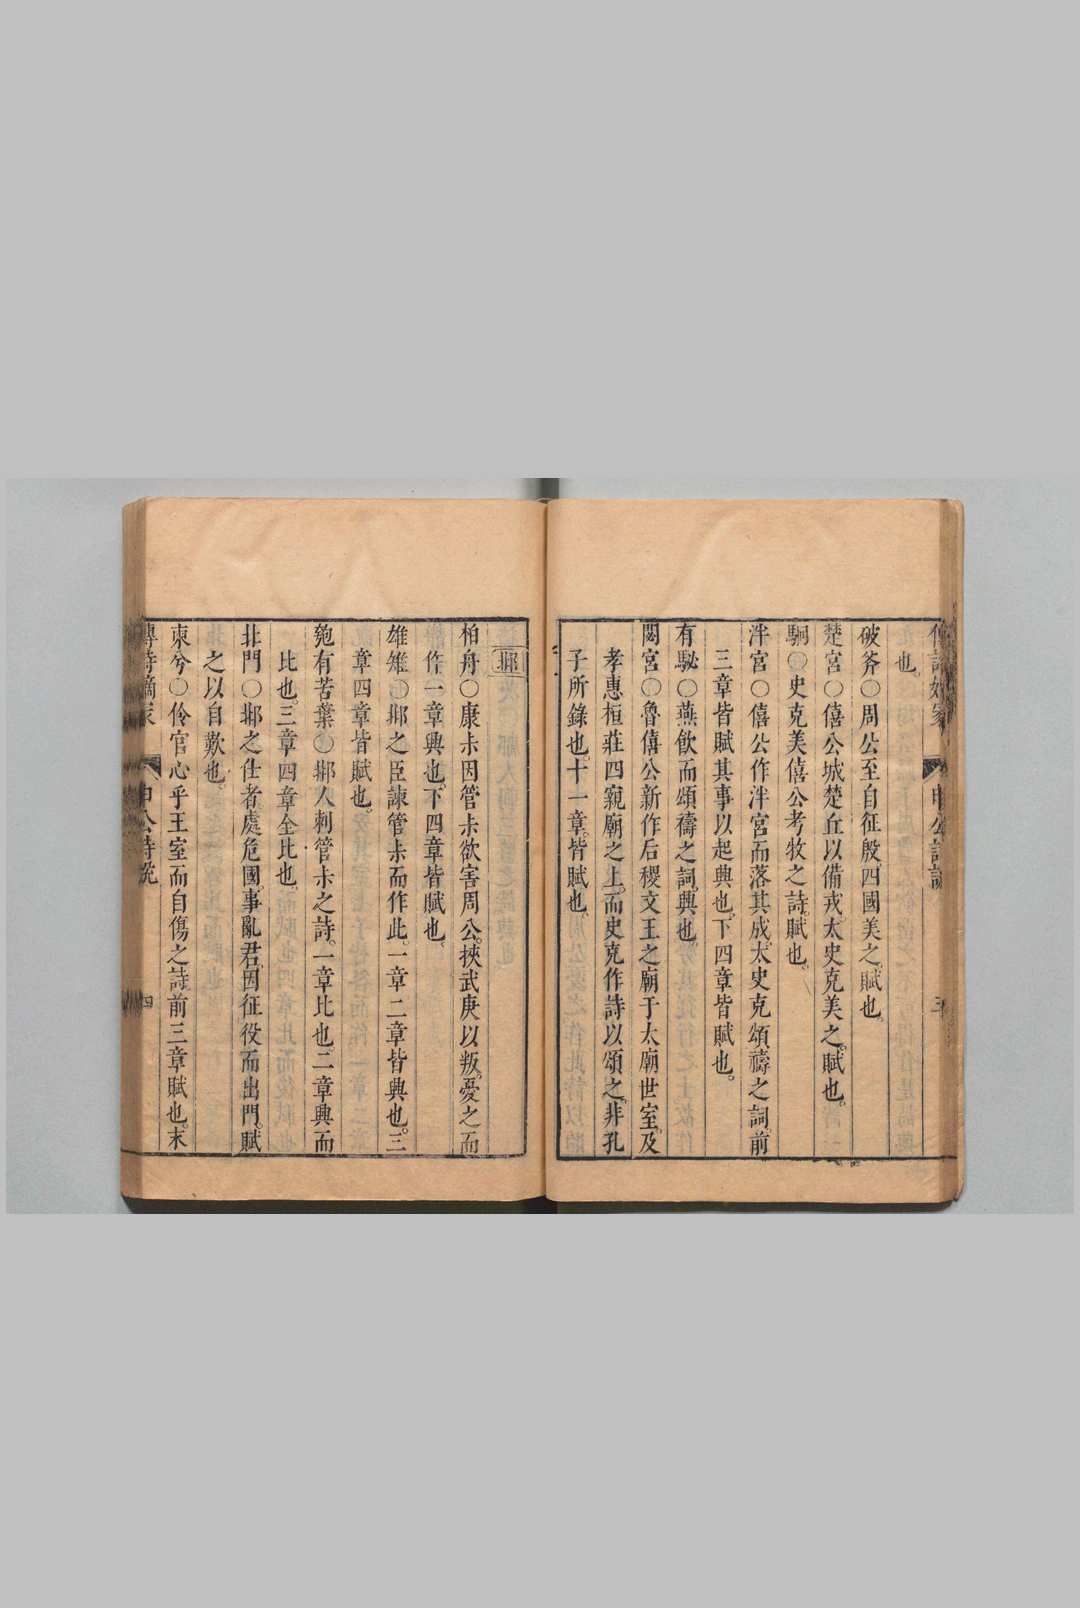 也。
破斧○周公至自征殷。四國美之。賦也。
楚宮○僖公城楚丘以備戎。太史克美之。賦也。
駉○史克美僖公考牧之詩。賦也。
泮宮○僖公作泮宮而落其成。太史克頌禱之詞。前
三章皆賦其事以起興也。下四章皆賦也。
有駜○燕飲而頌禱之詞。興也。
閟宮○魯僖公新作后稷文王之廟于太廟世室。及
孝惠桓莊四寢廟之上。而史克作詩以頌之。非孔
子所錄也。十一章。皆賦也。
邶
柏舟○康叔因管叔欲害周公。挾武庚以叛。憂之而
作一章興也。下四章皆賦也。
雄雉○邶之臣諫管叔而作此。一章二章皆興也。三
章四章皆賦也。
匏有苦葉○邶人刺管叔之詩。一章比也二章興而
比也。三章四章全比也。
北門○邶之仕者處危國。事亂君。因征役而出門。賦
之以自歎也。
柬兮○伶官心乎王室而自傷之詩前三章賦也。末
申公詩說
四